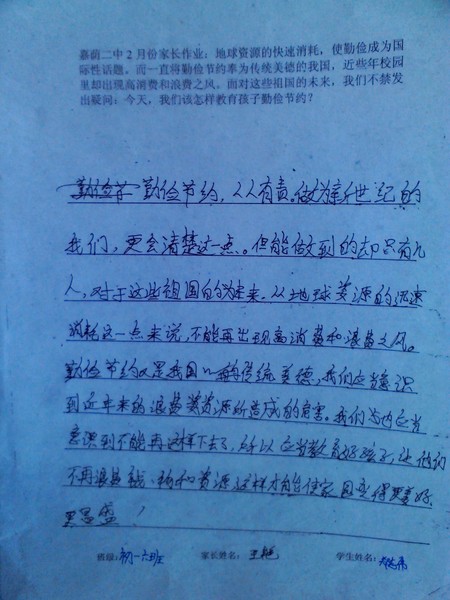 嘉荫二中2月份家长作业：地球资源的快速消耗，使勤俭成为国
际性话题。而一直将勤俭节约奉为传统美德的我国，近些年校园
里却出现高消费和浪费之风。面对这些祖国的未来，我们不禁发
出疑问：今天，我们该怎样教育孩子勤俭节约？
勤俭节 勤俭节约，人人有责。做为新世纪的
我们，更会清楚这一点。但能做到的却只有几
人，对于这些祖国的未来，从地球资源的迅速
消耗这一点来说，不能再出现高消费和浪费之风。
勤俭节约又是我国一的传统美德，我们应当意识
到近年来的浪费资源所造成的危害。我们也应当
意识到不能再这样下去了，所以应当教育好孩子，让他们
不再浪费钱、和资源这样才能使家园变得更美好
更昌盛！
班级：初一六班 家长姓名：王艳 学生姓名：